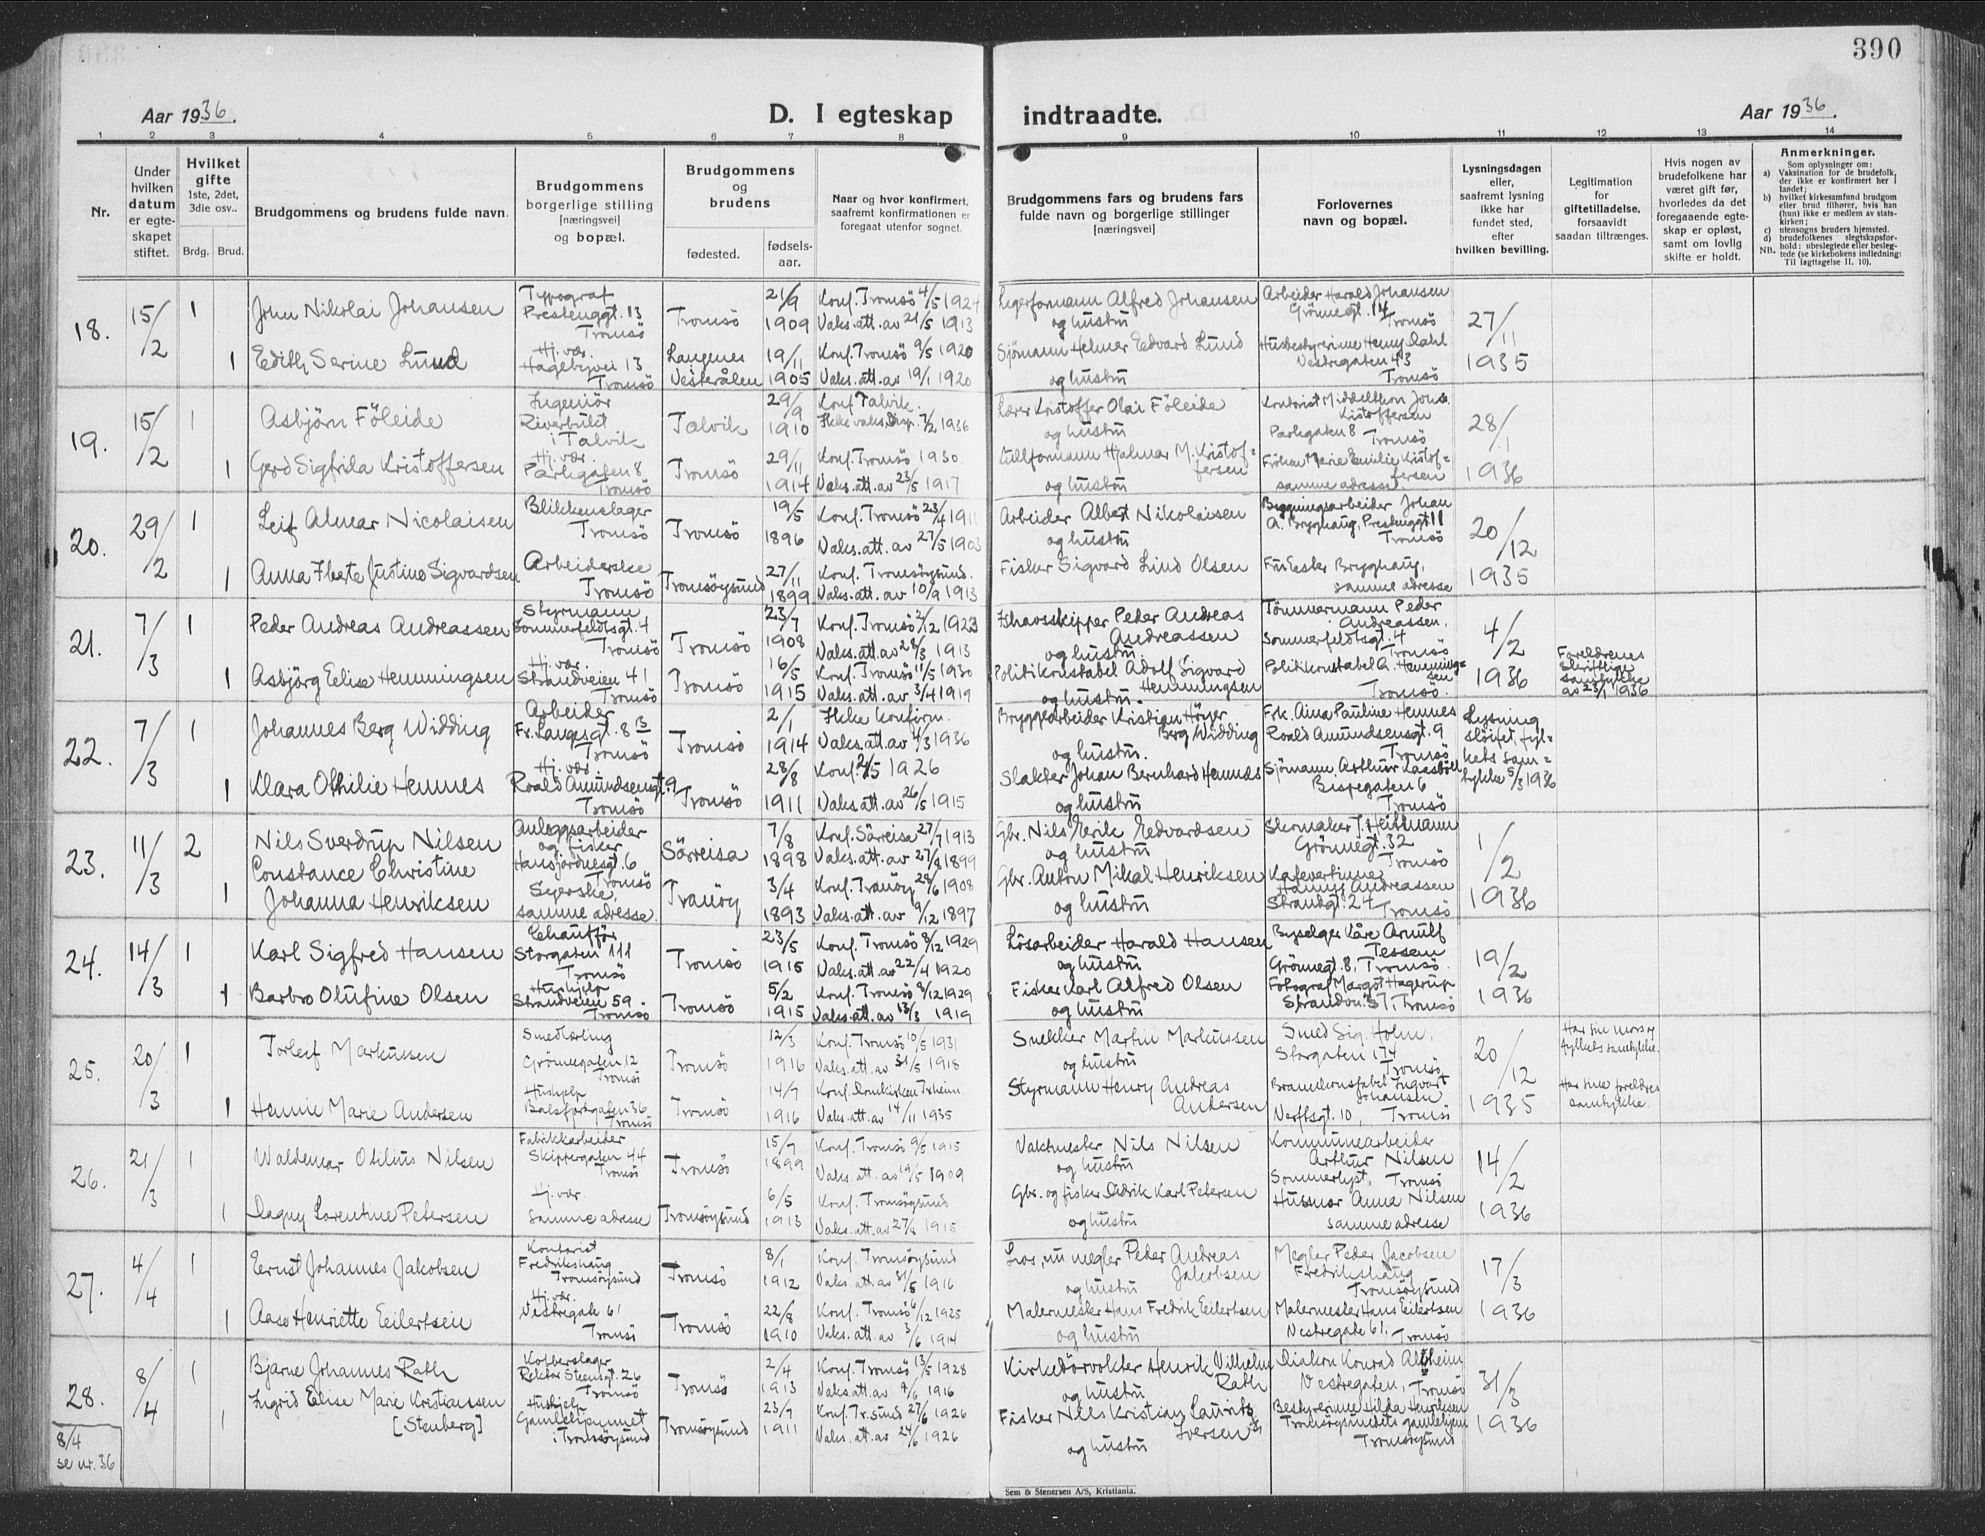 390
Aar 1936.
D. I egteskap indtraadte.
Aar 1936.
1 2 3 4 5 6 7 8 9 10 11 12 13 14
Nr.
Under hvilken datum er egteskapet stiftet.
Hvilket gifte
1ste, 2det, 3die osv..
Brdg. Brud.
Brudgommens og brudens fulde navn.
Brudgommens borgerlige stilling [næringsvei] og bopæl.
Brudgommens og brudens
fødested.
fødselsaar.
Naar og hvor konfirmert, saafremt konfirmationen er foregaat utenfor sognet.
Brudgommens fars og brudens fars fulde navn og borgerlige stillinger [næringsvei]
Forlovernes navn og bopæl.
Lysningsdagen eller, saafremt lysning ikke har fundet sted, efter hvilken bevilling.
Legitimation for giftetilladelse, forsaavidt saadan tiltrænges.
Hvis nogen av brudefolkene har været gift før, hvorledes da det foregaaende egteskap er opløst, samt om lovlig skifte er holdt.
Anmerkninger.
Som oplysninger om:
a) Vaksination for de brudefolk, der ikke er konfirmert her i landet;
b) hvilket kirkesamfund brudgom eller brud tilhører, hvis han (hun) ikke er medlem av statskirken;
c) utensogns bruders hjemsted.
d) brudefolkenes slegtskapsforhold; ubeslegtede eller beslegtede (se kirkebokens indledning:
NB. Til iagttagelse II, 10).
18. 15/2 1 John Nikolai Johansen Typograf Prestenggt. 13 Tromsö Tromsö 21/9 1909 Konf. Tromsö 4/5 1924 Vaks. att. av 21/5 1913 Lagerformann Alfred Johansen og hustru Arbeider Harald Johansen Grönnegt. 14 Tromsö 27/11 1935
1 Edith Serine Lund Hj. vær. Hagebyvei 13 Tromsö Langenes Vesterålen 19/11 1905 Konf. Tromsö 9/5 1920 Vaks. att. av 19/1 1920 Sjömann Helmer Edvard Lund og hustru Husbestyrerinne Henny Dahl Vestregaten 43 Tromsö
19. 15/2 1 Asbjörn Föleide Ingeniör Riverbukt i Talvik Talvik 29/9 1910 Konf. Talvik. Ikke vaks. Disp. 7/2 1936 Lærer Kristoffer Olai Föleide og hustru Kontorist Middelthon Jons. Kristoffersen Parkgaten 8 Tromsö 28/1 1936
1 Gerd Sigfrida Kristoffersen Hj. vær. Parkgaten 8 Tromsö Tromsö 29/11 1914 Konf. Tromsö 1930. Vaks. att. av 23/5 1917 Tollformann Hjalmar M. Kristoffersen og hustru Fröken Marie Emilie Kristoffersen samme adresse
20. 29/2 1 Leif Almar Nicolaisen Blikkenslager Tromsö Tromsö 19/5 1896 Konf. Tromsö 23/4 1911 Vaks. att. av 27/5 1903 Arbeider Albert Nikolaisen og hustru Bygningsarbeider Johan A. Bryghaug, Prestenggt 11 Tromsö 20/12 1935
1 Anna Justine Sigvardsen Arbeiderske Tromsö Tromsöysund 27/11 1899 Konf. Tromsöysund. Vaks. att. av 10/9 1913 Fisker Sigvard Lind Olsen Fru Ester Bryghaug, samme adresse
21. 7/3 1 Peder Andreas Andreassen Styrmann Sommerfeldtsgt. 4 Tromsö Tromsö 23/7 1908 Konf. Tromsö 2/12 1923 Vaks. att. av 28/3 1913 Ishavsskipper Peder Andreas Andreassen og hustru. Tömmermann Peder Andreassen, Sommerfeldtsgt. 4 Tromsö 4/2 1936
1 Asbjörg Elise Hemmingsen Hj. vær. Strandveien 41 Tromsö Tromsö 16/5 1915 Konf. Tromsö 11/5 1930 Vaks. att. av 3/4 1919 Politikonstabel Adolf Sigvard Hemmingsen og hustru. Politikonstabel A. Hemmingsen Tromsö. Foreldrenes skriftlige samtykke av 23/1 1936
22. 7/3 1 Johannes Berg Widding Arbeider Fr. Langesgt. 8 B Tromsö Tromsö 2/1 1914 Ikke konfirm. Vaks. att. av 4/3 1936 Bryggearbeider Kristian Höyer Berg Widding og hustru. Frk. Aina Pauline Hennes Roald Amundsensgt. 9 Tromsö Lysning slöifet, fylkets samtykke 5/3 1936
1 Klara Othilie Hennes Hj. vær Roald Amundsensgt. 9 Tromsö Tromsö 28/8 1911 Konf. 2/5 1926 Vaks. att. av 26/5 1915 Slakter Johan Bernhard Hennes og hustru Sjömann Arthur Laasböll Bispegaten 6 Tromsö
23. 11/3 2 Nils Sverdrup Nilsen Anleggsarbeider og fisker Hansjordnesgt. 6 Tromsö Sörreisa 7/8 1898 Konf. Sörreisa 27/7 1913 Vaks. att. av 27/8 1899 Gbr. Nils Erik Edvardsen og hustru Skomaker J. Heitmann Grönnegt. 32 Tromsö 1/2 1936
1 Constance Christine Johanna Henriksen Syerske, samme adresse. Tranöy 3/4 1893 Konf. Tranöy 28/6 1908 Vaks. att. av 9/12 1897 Gbr. Anton Mikal Henriksen og hustru Kafevertinne Hanny Andreassen Strandgt. 24 Tromsö
24. 14/3 1 Karl Sigfred Hansen Chaufför Storgaten 111 Tromsö Tromsö 23/5 1915 Konf. Tromsö 8/12 1929 Vaks. att. av 22/4 1920 Lösarbeider Harald Hansen og hustru Byselger Kåre Arnulf Tessen Grönnegt. 8, Tromsö. 19/2 1936
1 Barbro Olufine Olsen Hushjelp Strandveien 59. Tromsö Tromsö 5/2 1915 Konf. Tromsö 8/12 1929 Vaks. att. av 13/3 1919 Fisker Karl Alfred Olsen og hustru Fotograf Margot Hagerup Strandvn. 37, Tromsö
25. 20/3 1 Torleif Markussen Smedlærling Grönnegaten 12 Tromsö Tromsö 12/3 1916 Konf. Tromsö 10/5 1931 Vaks. att. av 31/5 1918 Snekker Martin Markussen og hustru Smed Sig. Holm, Storgaten 174 Tromsö 20/12 1935 Har sin mors og fylkets samtykke.
1 Hennie Marie Andersen Hushjelp Balsfjordgaten 36 Tromsö Tromsö 14/7 1916 Konf. Domkirken Trheim Vaks. att. av 14/11 1935 Styrmann Henry Andreas Andersen Brannkonstabel Ingvart Johansen Verftsgt. 10, Tromsö Har sine foreldres samtykke.
26. 21/3 1 Waldemar Otilius Nilsen Fabrikkarbeider Skippergaten 44 Tromsö Tromsö 15/7 1899 Konf. Tromsö 9/5 1915 Vaks. att. av 19/5 1909 Vaktmester Nils Nilsen og hustru Kommunearbeider Arthur Nilsen Sommerlyst, Tromsö 14/2 1936
1 Dagny Lorentine Petersen Hj. vær. Samme adresse Tromsöysund 6/5 1913 Konf. Tromsöysund Vaks. att. av 27/6 1915 Gbr. og fisker Didrik Karl Petersen og hustru Husmor Anna Nilsen samme adresse
27. 4/4 1 Ernst Johannes Jakobsen Kontorist Fredrikshaug Tromsöysund Tromsö 8/1 1912 Konf. Tromsöysund Vaks. att. av 31/5 1916 Los, nu megler Peder Andreas Jakobsen og hustru Megler Peder Jacobsen Fredrikshaug Tromsöysund 17/3 1936
1 Aase Henriette Eilertsen Hj. vær. Vestregate 61 Tromsö Tromsö 22/8 1910 Konf. Tromsö 6/12 1925 Vaks. att. av 3/6 1914 Malermester Hans Fredrik Eilertsen og hustru Malermester Hans Eilertsen Vestregate 61. Tromsö
28. 8/4 1 Bjarne Johannes Rath Kobberslager Rektor Steensgt. 26 Tromsö Tromsö 2/4 1913 Konf. Tromsö 13/5 1928 Vaks. att. av 7/6 1916 Kirkedörvokter Henrik Vilhelm Rath og hustru Diakon Konrad Altheim Vestregaten, Tromsö 31/3 1936
1 Ingrid Elise Marie Kristiansen [Stenberg] Hushjelp Gamlehjemmet i Tromsöysund Tromsöysund 23/7 1911 Konf. Tr.sund 27/6 1926 Vaks. att. av 24/6 1926 Fisker Nils Kristian Lauritz Iversen og hustru Bestyrerinne Hilda Henriksen Tromsöysundets gamlehjem Tromsöysund
8/4 se nr. 36
Sem & Stenersen A/S, Kristiania.